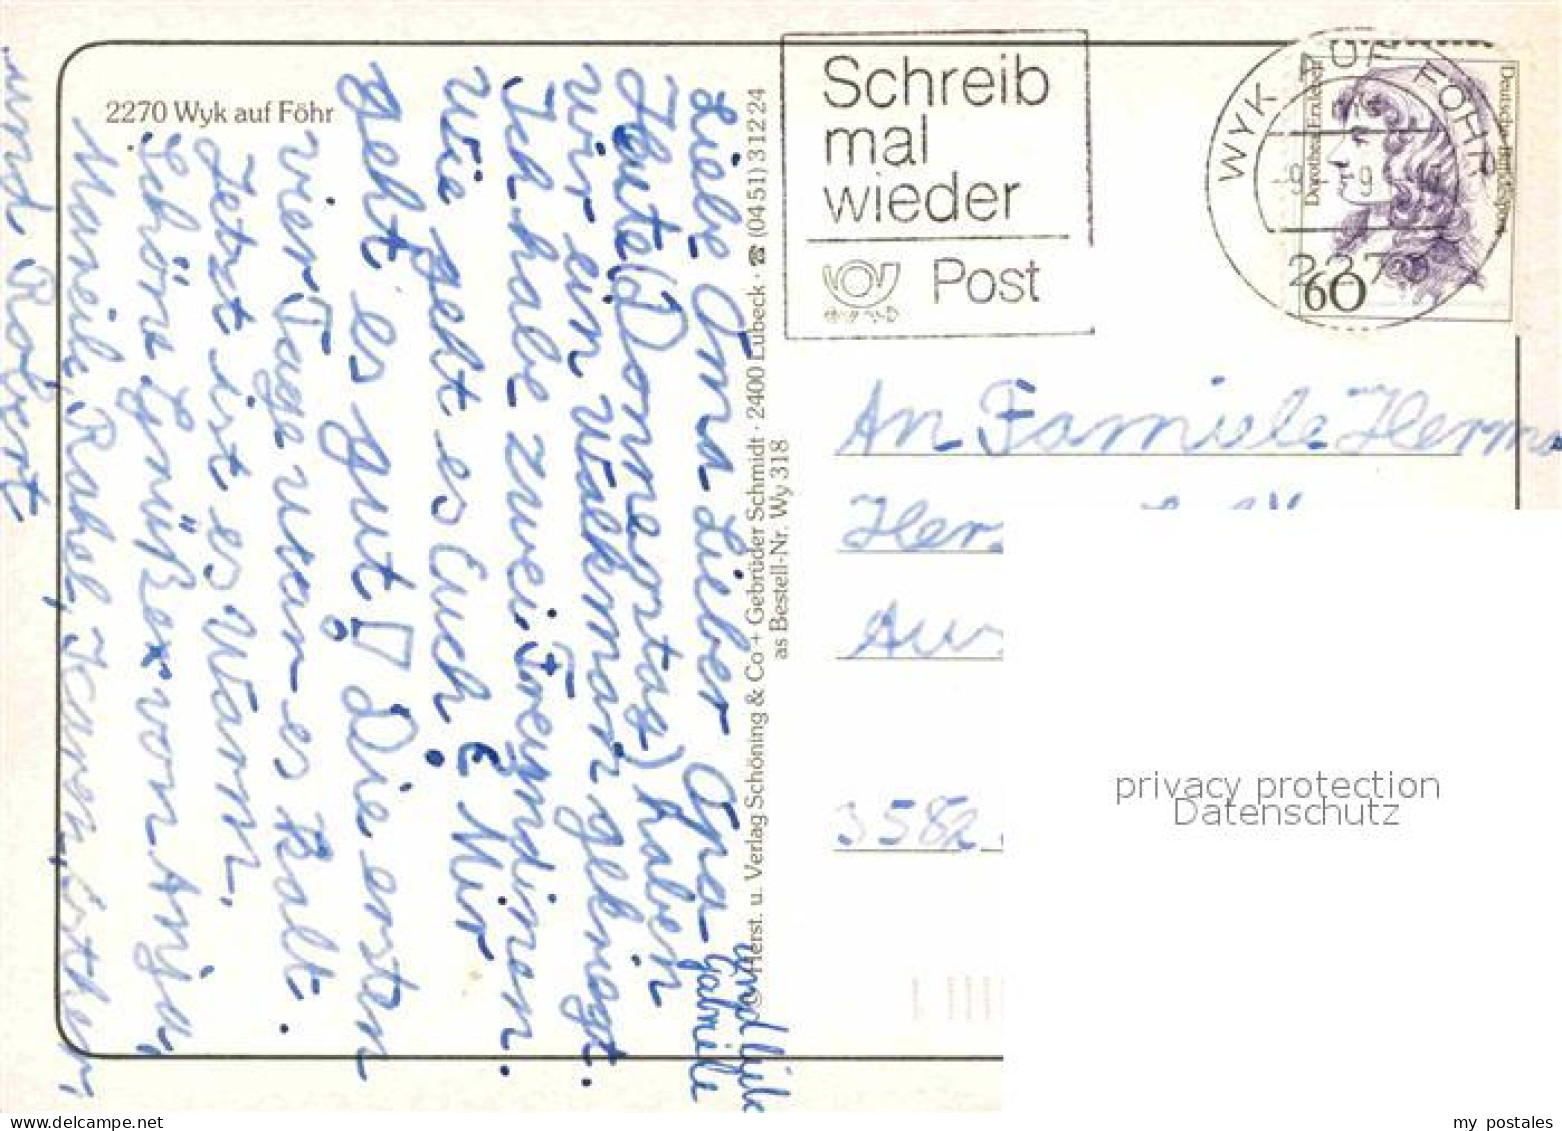 2270 Wyk auf Föhr
Liebe Oma Lieber Opa
und liebe
Gabriele
Heute (Donnerstag) haben
wir ein Walkman gekriegt.
Ich habe zwei Freundinen.
Wie geht es Euch? Mir
geht es gut! Die ersten
vier Tage war es Kalt.
Jetzt ist es Warm.
Schöne Grüße von Anja,
Mareile, Rahel, Karen, Esther,
und Robert
© Herst. u. Verlag Schöning & Co + Gebrüder Schmidt · 2400 Lübeck · ☎ (0451) 31224
as Bestell-Nr. Wy 318
Schreib
mal
wieder
Post
WYK AUF FÖHR
2270
Deutsche Bundespost
Dorothea Erxleben
60
An Familie Herm
3582
privacy protection
Datenschutz
my postales
www.delcampe.net